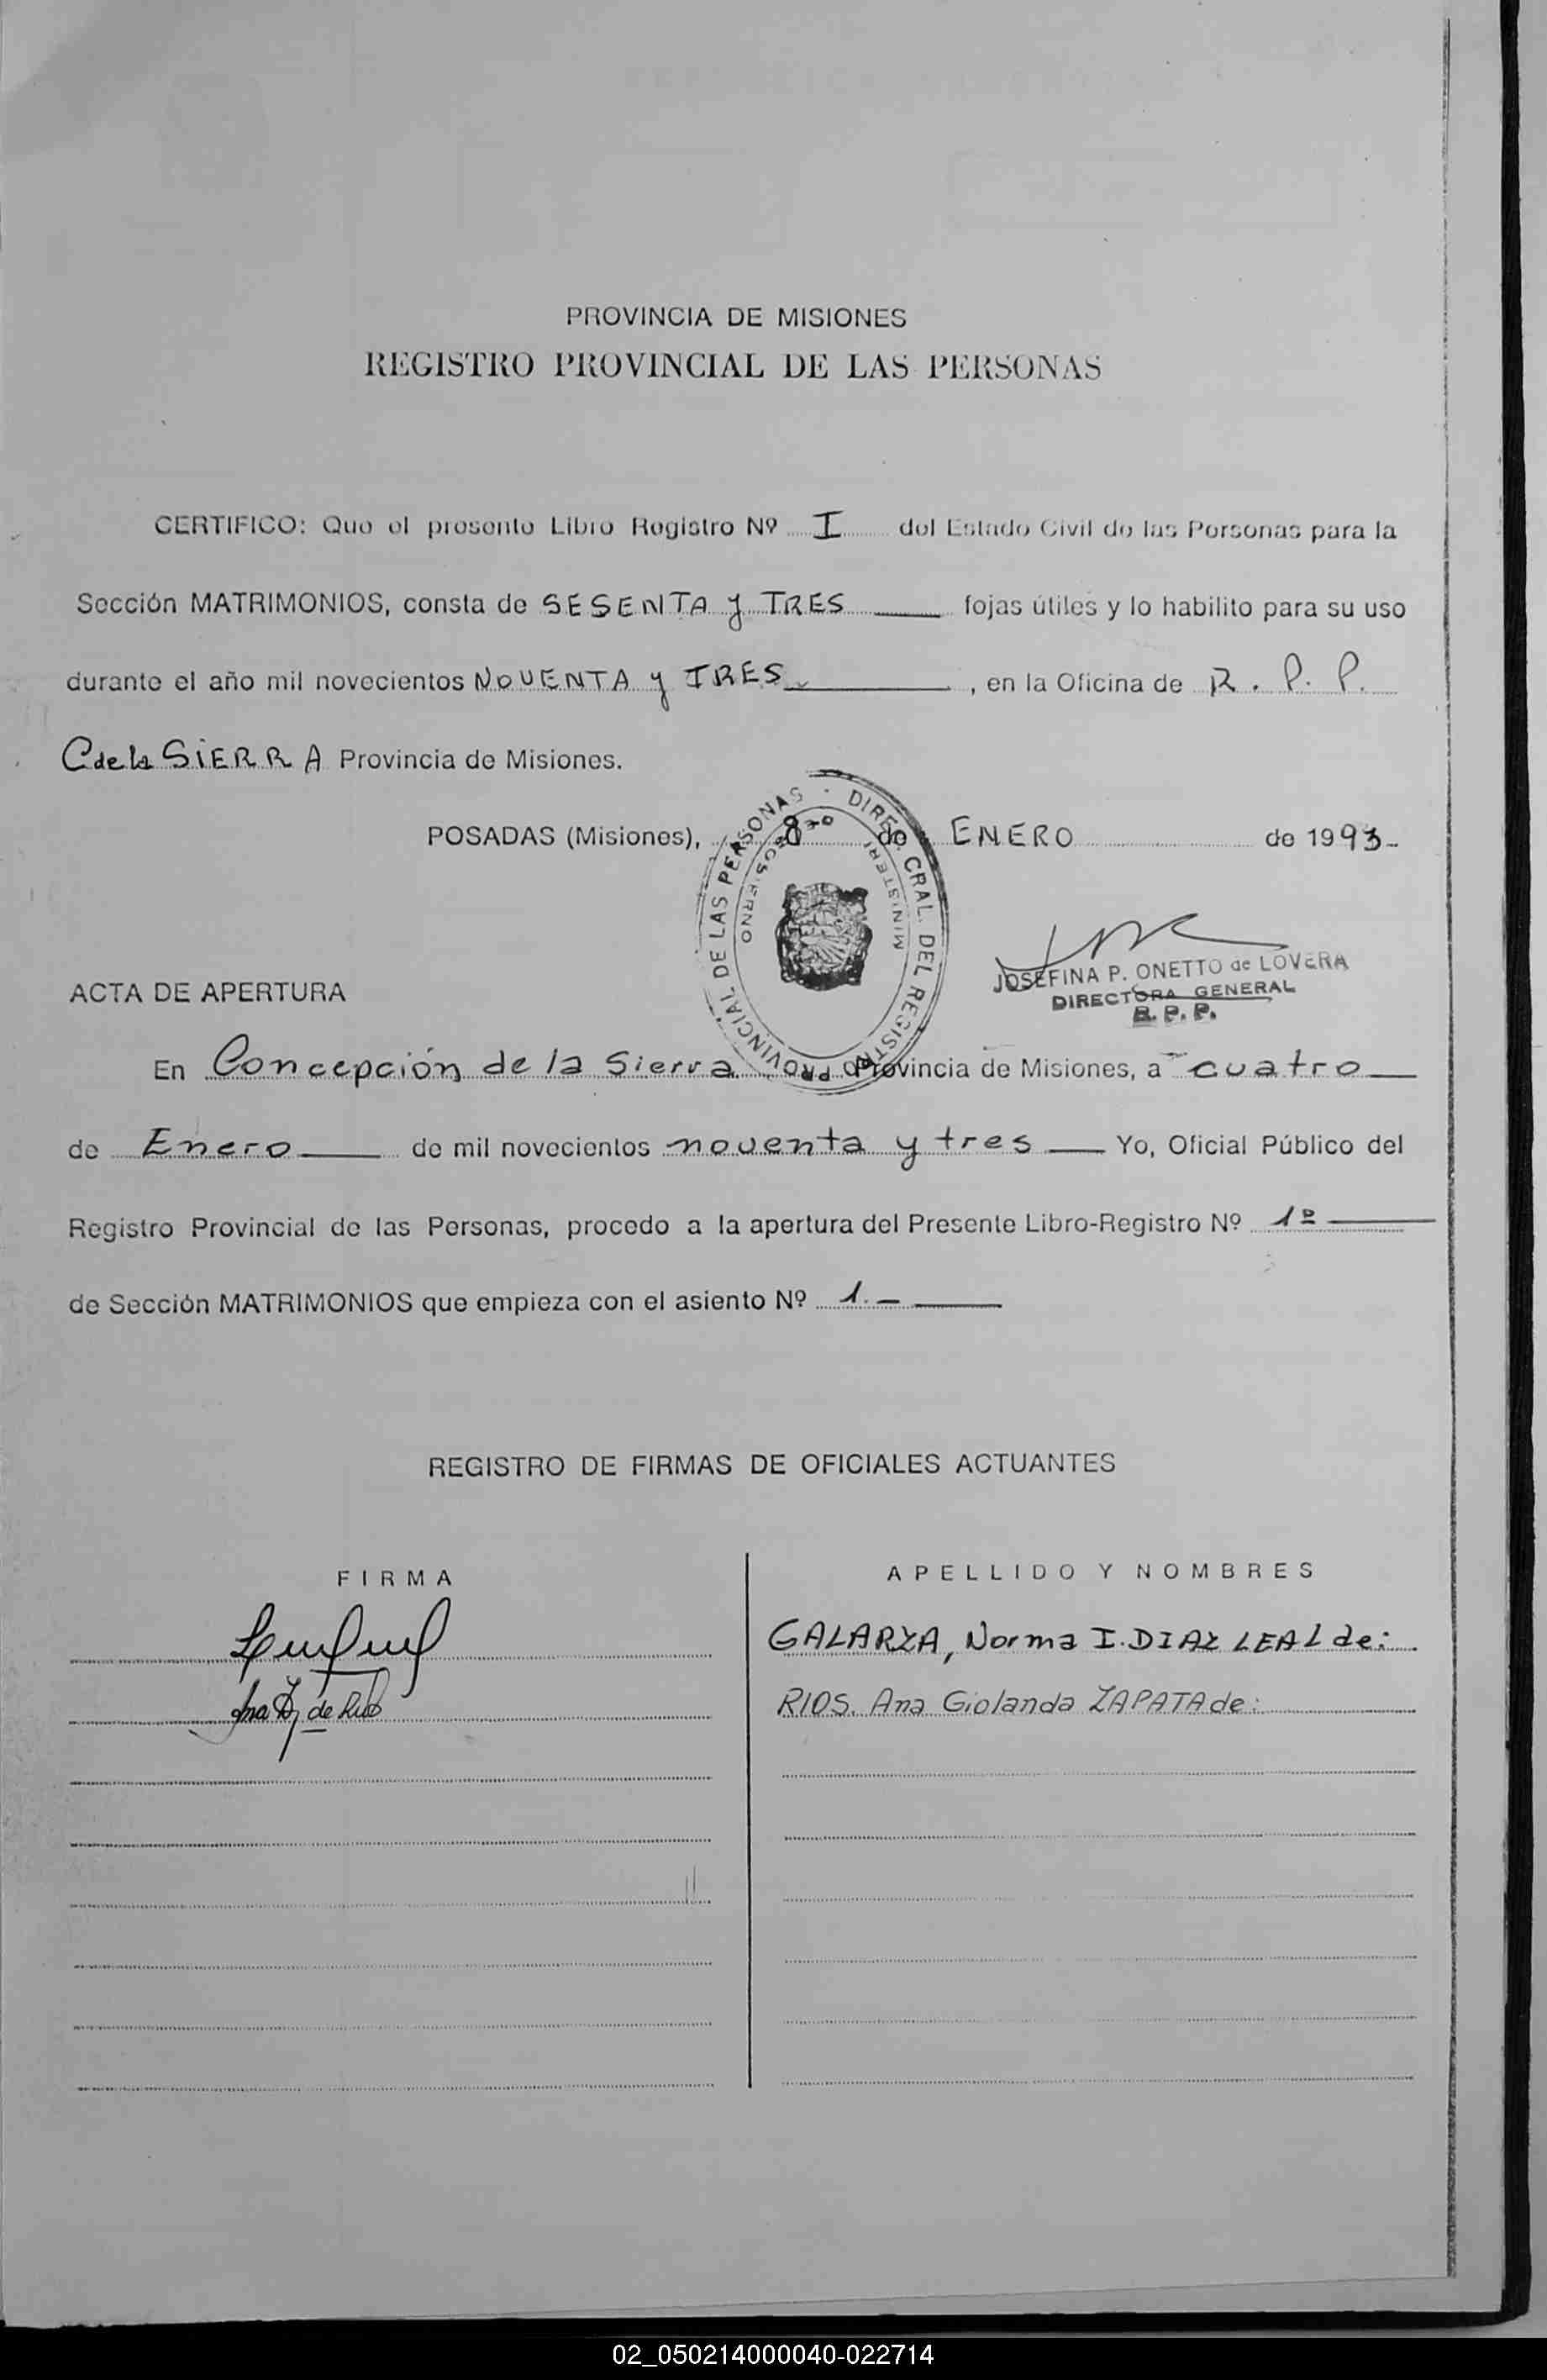 PROVINCIA DE MISIONES
REGISTRO PROVINCIAL DE LAS PERSONAS
CERTIFICO: Que el presente Libro Registro Nº I del Estado Civil de las Personas para la
Sección MATRIMONIOS, consta de SESENTA y TRES fojas útiles y lo habilito para su uso
durante el año mil novecientos NOVENTA y TRES, en la Oficina de R. P. P.
C de la SiERRA Provincia de Misiones.
POSADAS (Misiones), de ENERO de 1993-
DIREC. GRAL. DEL REGISTRO PROVINCIAL DE LAS PERSONAS
MINISTERI GOBIERNO
JOSEFINA P. ONETTO de LOVERA
DIRECTORA GENERAL
R. P. P.
ACTA DE APERTURA
En Concepción de la Sierra Provincia de Misiones, a cuatro
de Enero de mil novecientos noventa y tres Yo, Oficial Público del
Registro Provincial de las Personas, procedo a la apertura del Presente Libro-Registro Nº 1º
de Sección MATRIMONIOS que empieza con el asiento Nº 1.-
REGISTRO DE FIRMAS DE OFICIALES ACTUANTES
FIRMA APELLIDO Y NOMBRES
GALARZA, Norma I. DIAZ LEAL de:
Ana Z de Rios RIOS. Ana Giolanda ZAPATA de:
02_050214000040-022714